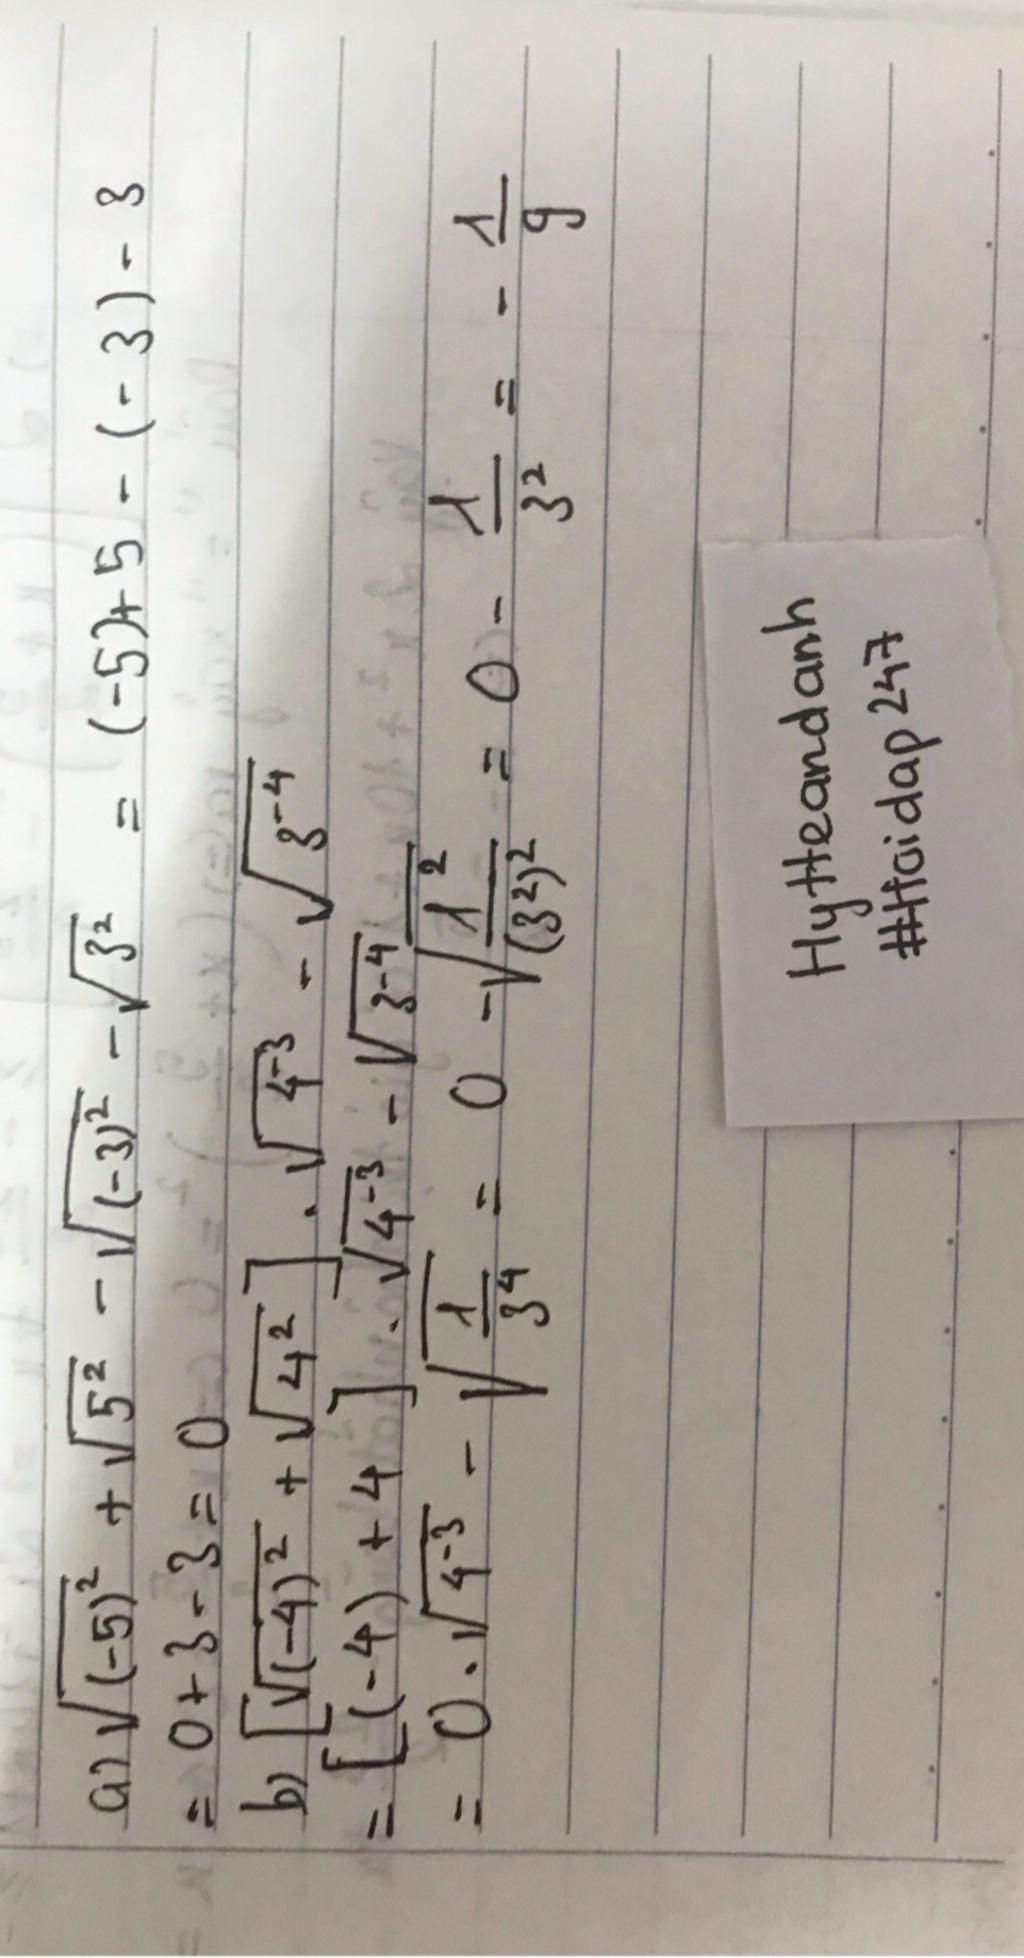 a) √(-5)² + √5² - √(-3)² - √3² = (-5)+5 - (-3) - 3
= 0+3-3=0
b) [√(-4)² + √4²] . √4⁻³ - √3⁻⁴
= [(-4) + 4] . √4⁻³ - √3⁻⁴
= 0 . √4⁻³ - √1/3⁴ = 0 - √1²/(3²)² = 0 - 1/3² = - 1/9
Hytteandanh
#Hoidap247